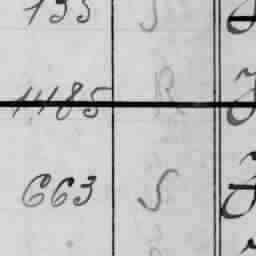 135 S
1485 R
663 S